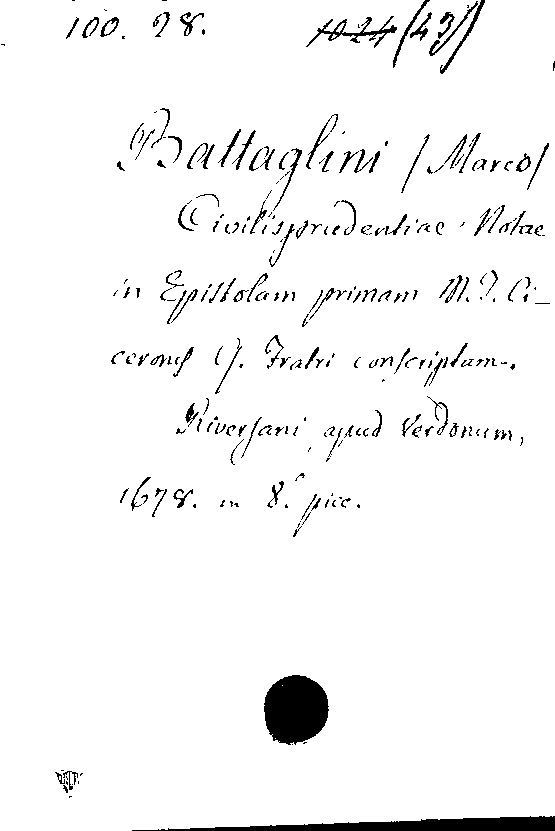 100. 28. 1024 (43)
Battaglini (Marco)
Civilisprudentiae Notae
in Epistolam primam M. T. Ci-
ceronis Q. Fratri conscriptam.
Riversani, apud Verdonum,
1678. in 8.° picc.